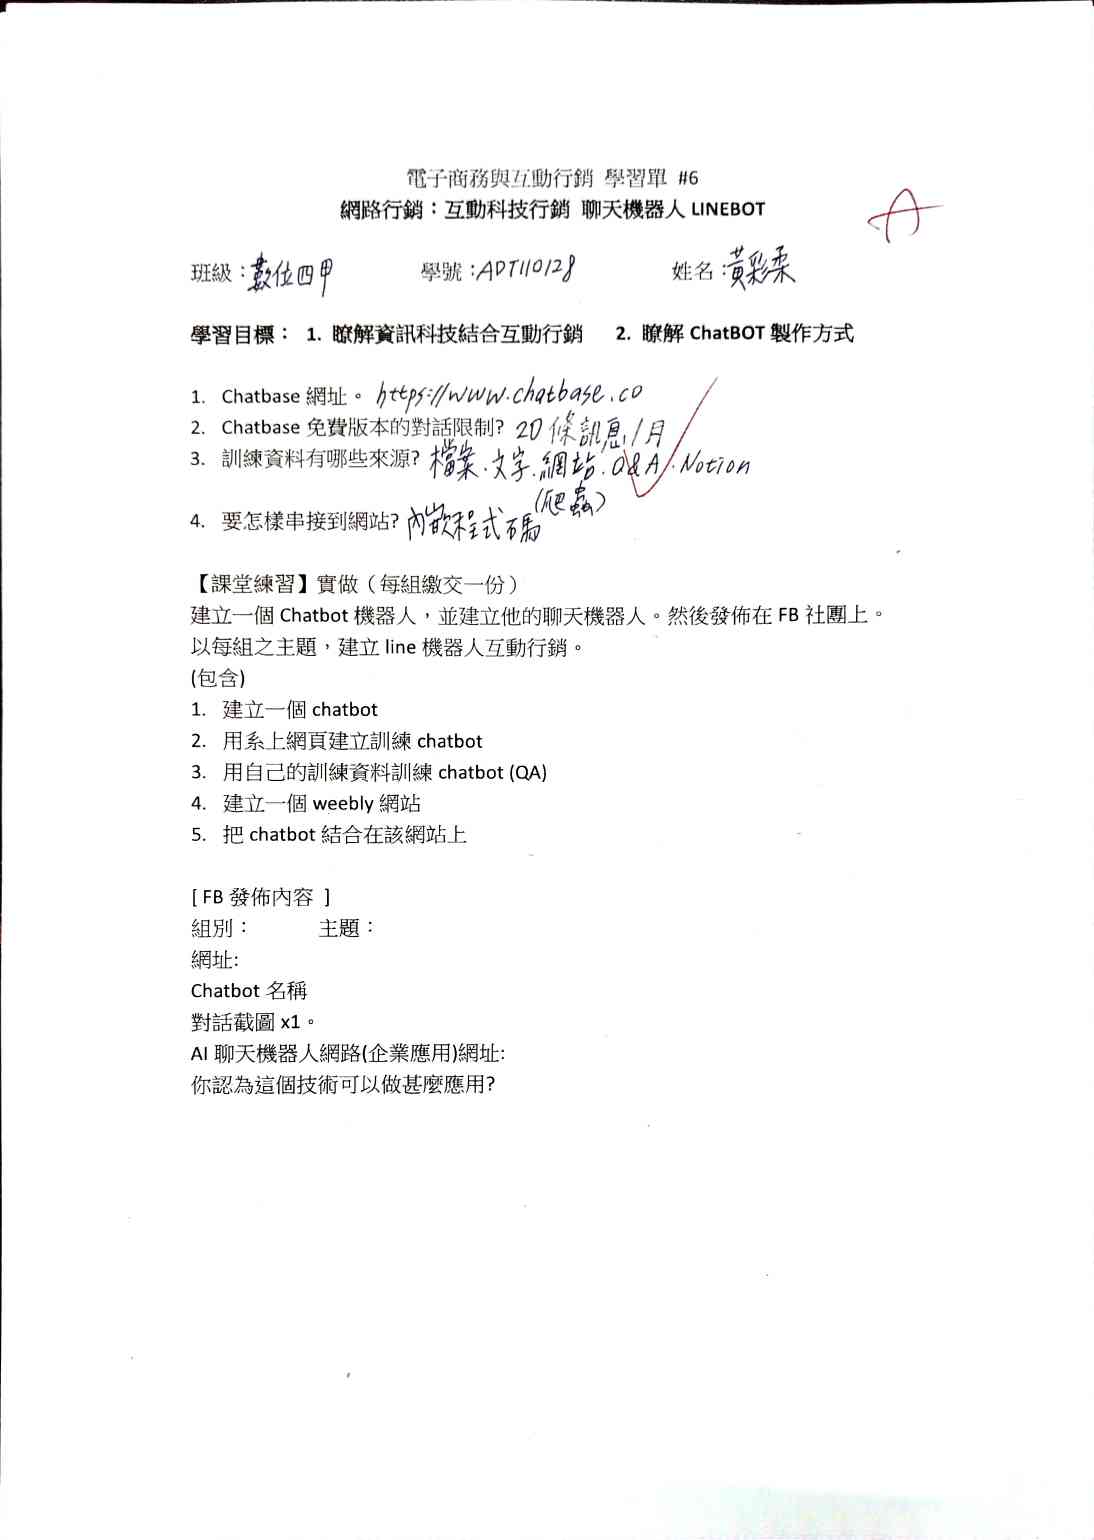 電子商務與互動行銷 學習單 #6
網路行銷：互動科技行銷 聊天機器人 LINEBOT
A
班級：數位四甲 學號：ADT110128 姓名：黃彩柔
學習目標： 1. 瞭解資訊科技結合互動行銷 2. 瞭解 ChatBOT 製作方式
1. Chatbase 網址。 https://www.chatbase.co
2. Chatbase 免費版本的對話限制? 20 條訊息/月
3. 訓練資料有哪些來源? 檔案、文字、網站、Q&A、Notion
(爬蟲)
4. 要怎樣串接到網站? 內嵌程式碼
【課堂練習】實做（每組繳交一份）
建立一個 Chatbot 機器人，並建立他的聊天機器人。然後發佈在 FB 社團上。
以每組之主題，建立 line 機器人互動行銷。
(包含)
1. 建立一個 chatbot
2. 用系上網頁建立訓練 chatbot
3. 用自己的訓練資料訓練 chatbot (QA)
4. 建立一個 weebly 網站
5. 把 chatbot 結合在該網站上
[ FB 發佈內容 ]
組別： 主題：
網址:
Chatbot 名稱
對話截圖 x1。
AI 聊天機器人網路(企業應用)網址:
你認為這個技術可以做甚麼應用?